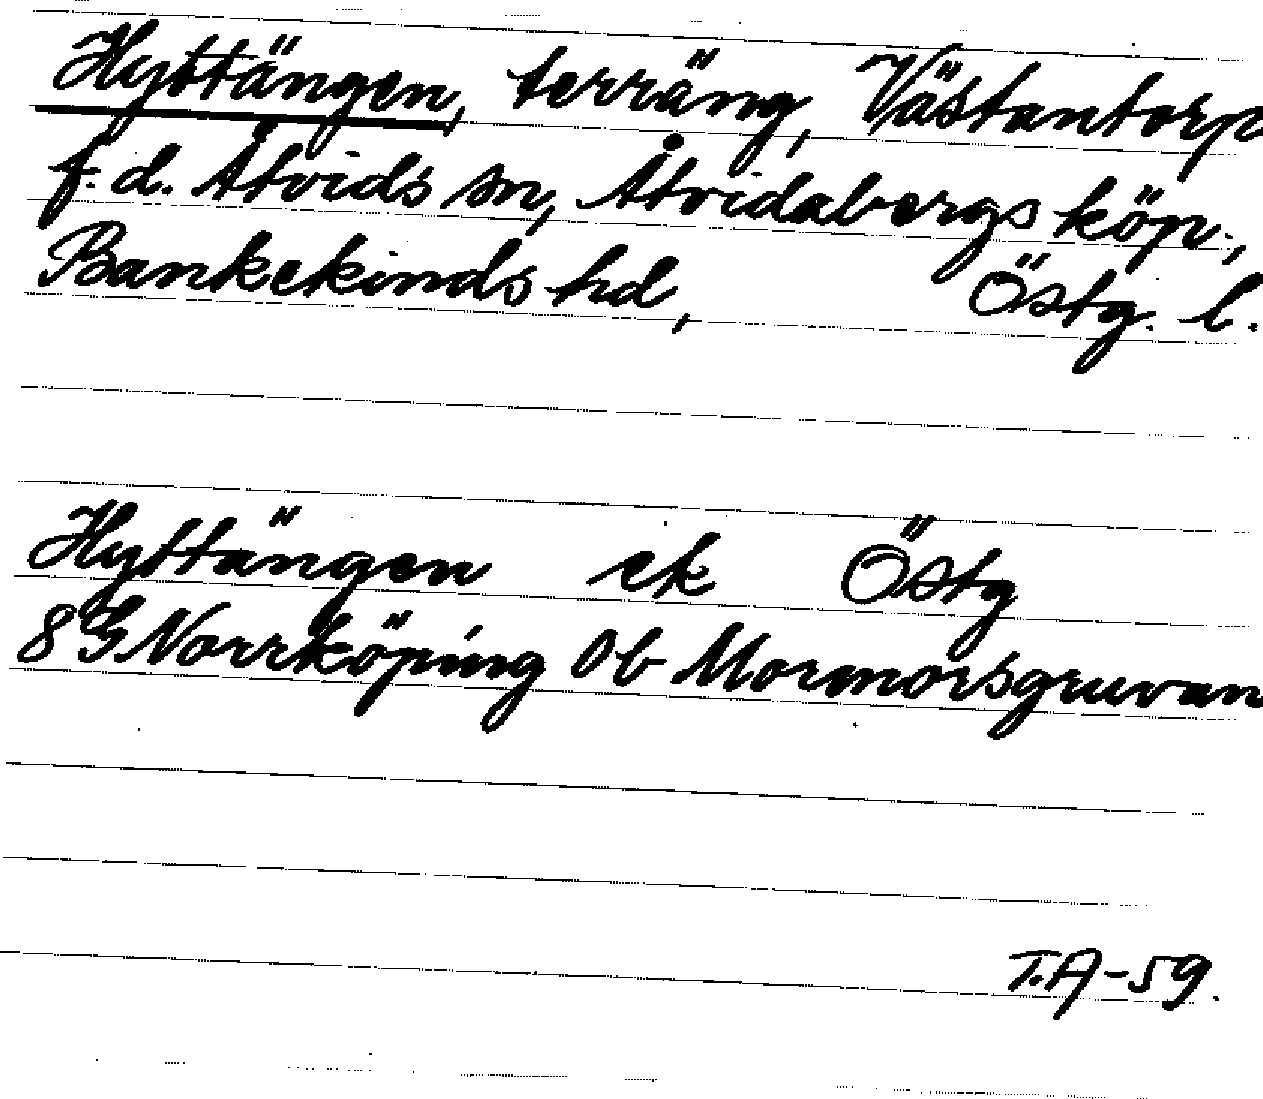 Hyttängen, terräng, Västantorp
f. d. Åtvids sn, Åtvidabergs köp.,
Bankekinds hd, Östg. l.
Hyttängen ek Östg
8 G Norrköping 0b Mormorsgruvan
T.A-59.